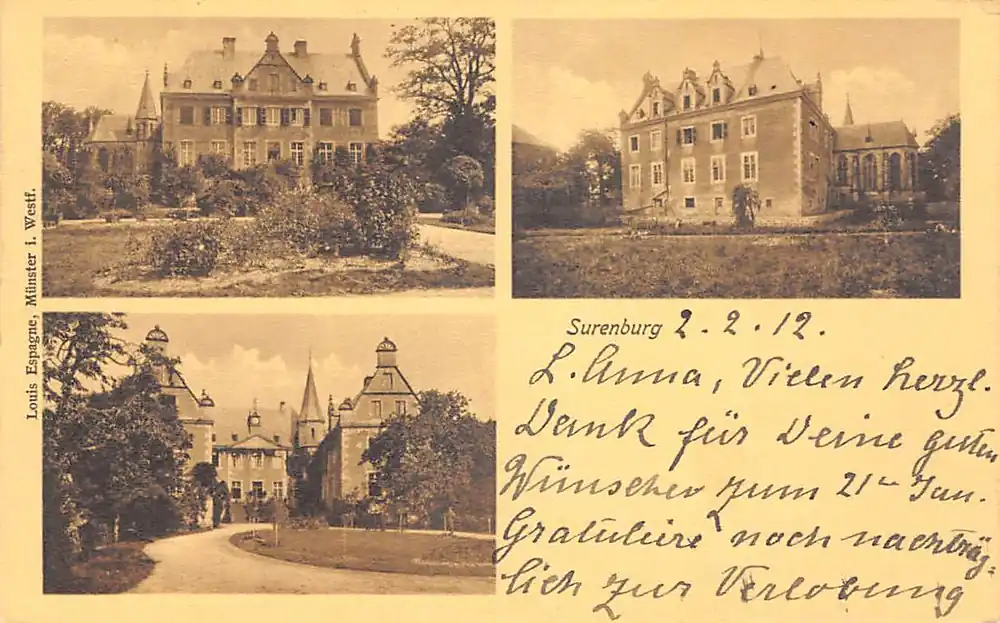 Louis Espagne, Münster i. Westf.
Surenburg 2.2.12.
L. Anna, Vielen herzl.
Dank für Deine guten
Wünsche zum 21ten Jan.
Gratuliere noch nachträg-
lich zur Verlobung